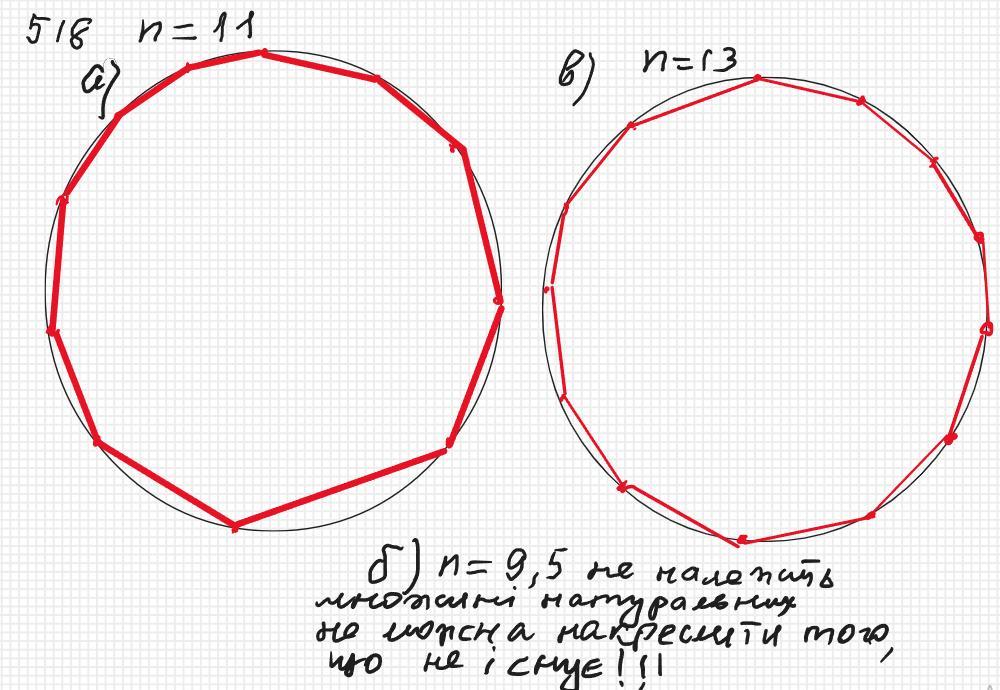 518 n=11
а)
в) n=13
б) n=9,5 не належить
множині натуральних
не можна накреслити того,
що не існує!!!